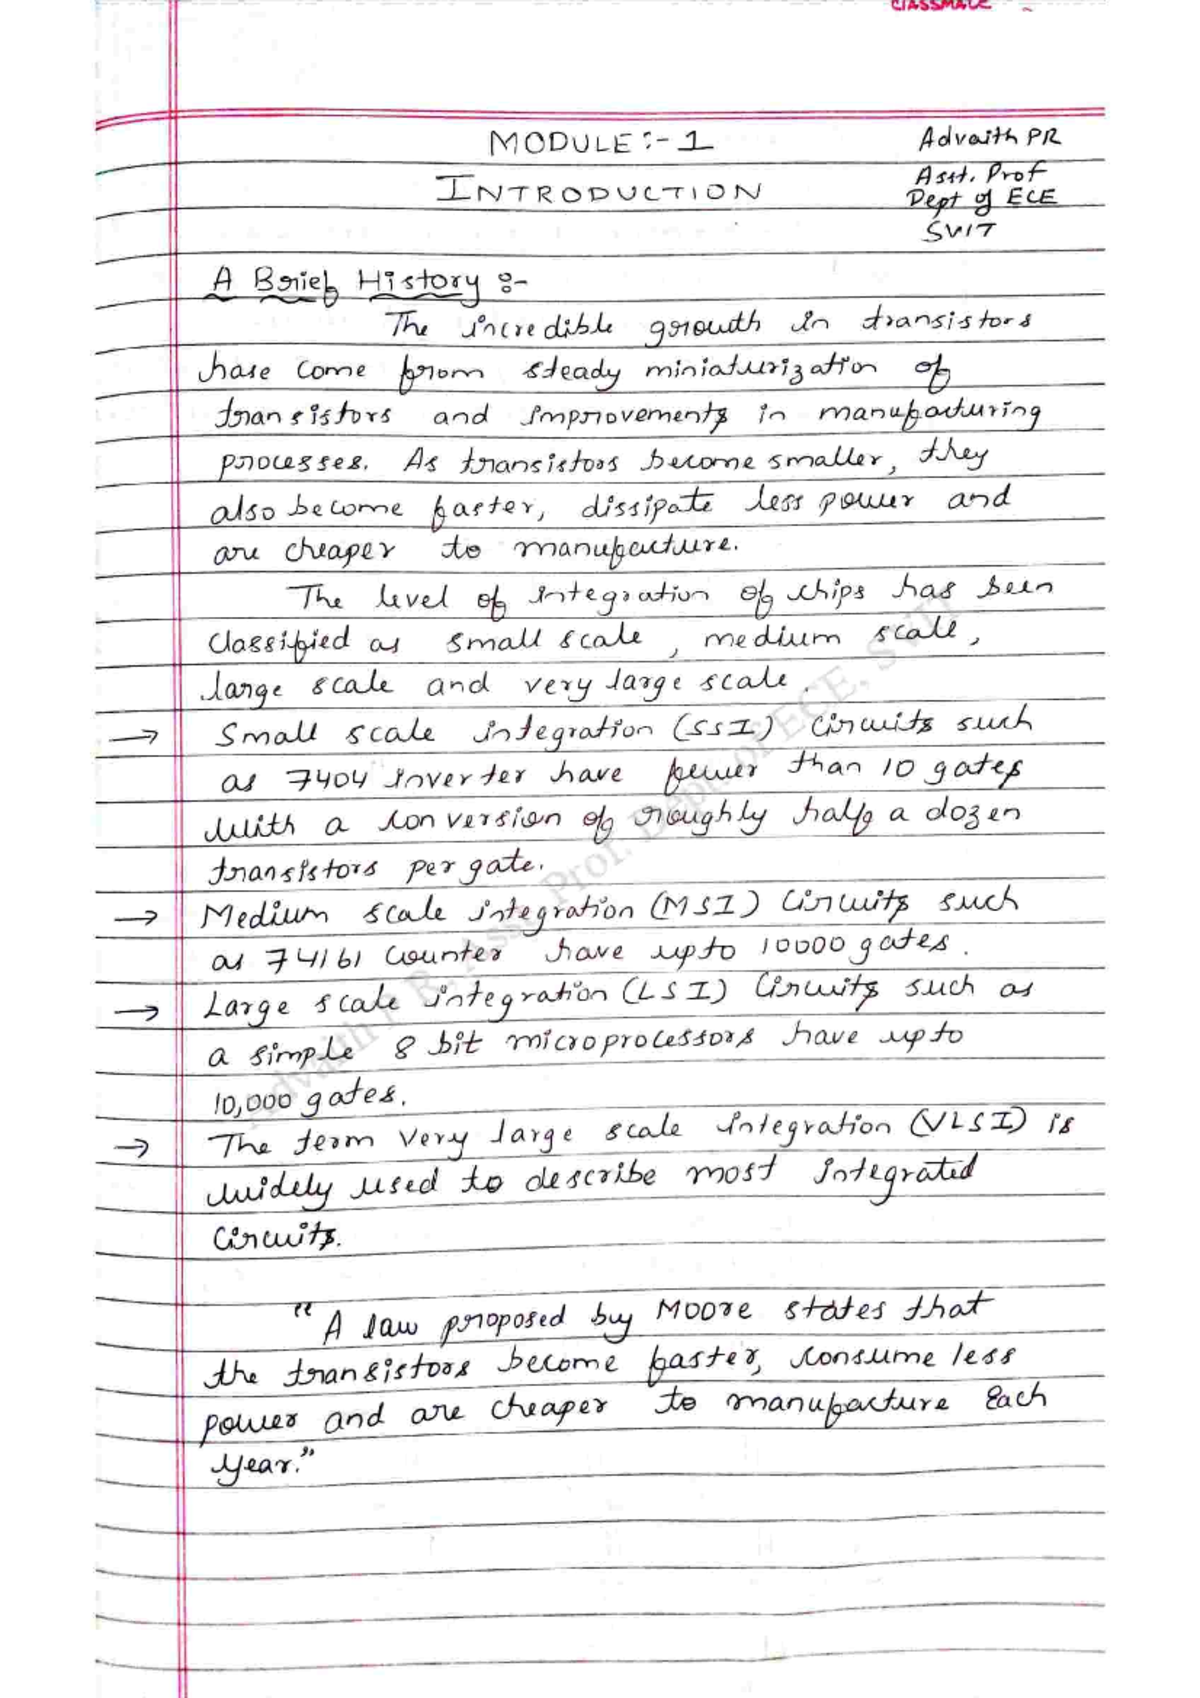 classmate
MODULE:- 1
Advaith PR
INTRODUCTION
Asst. Prof
Dept of ECE
SVIT
A Brief History :-
The incredible growth in transistors
have come from steady miniaturization of
transistors and improvements in manufacturing
processes. As transistors become smaller, they
also become faster, dissipate less power and
are cheaper to manufacture.
The level of integration of chips has been
classified as small scale, medium scale,
large scale and very large scale.
→ Small scale integration (SSI) circuits such
as 7404 inverter have fewer than 10 gates
with a conversion of roughly half a dozen
transistors per gate.
→ Medium scale integration (MSI) circuits such
as 74161 counter have upto 10000 gates.
→ Large scale integration (LSI) circuits such as
a simple 8 bit microprocessors have upto
10,000 gates.
→ The term very large scale integration (VLSI) is
widely used to describe most integrated
circuits.
"A law proposed by Moore states that
the transistors become faster, consume less
power and are cheaper to manufacture each
year."
Advaith P R, Asst. Prof. Dept. of ECE, SVIT